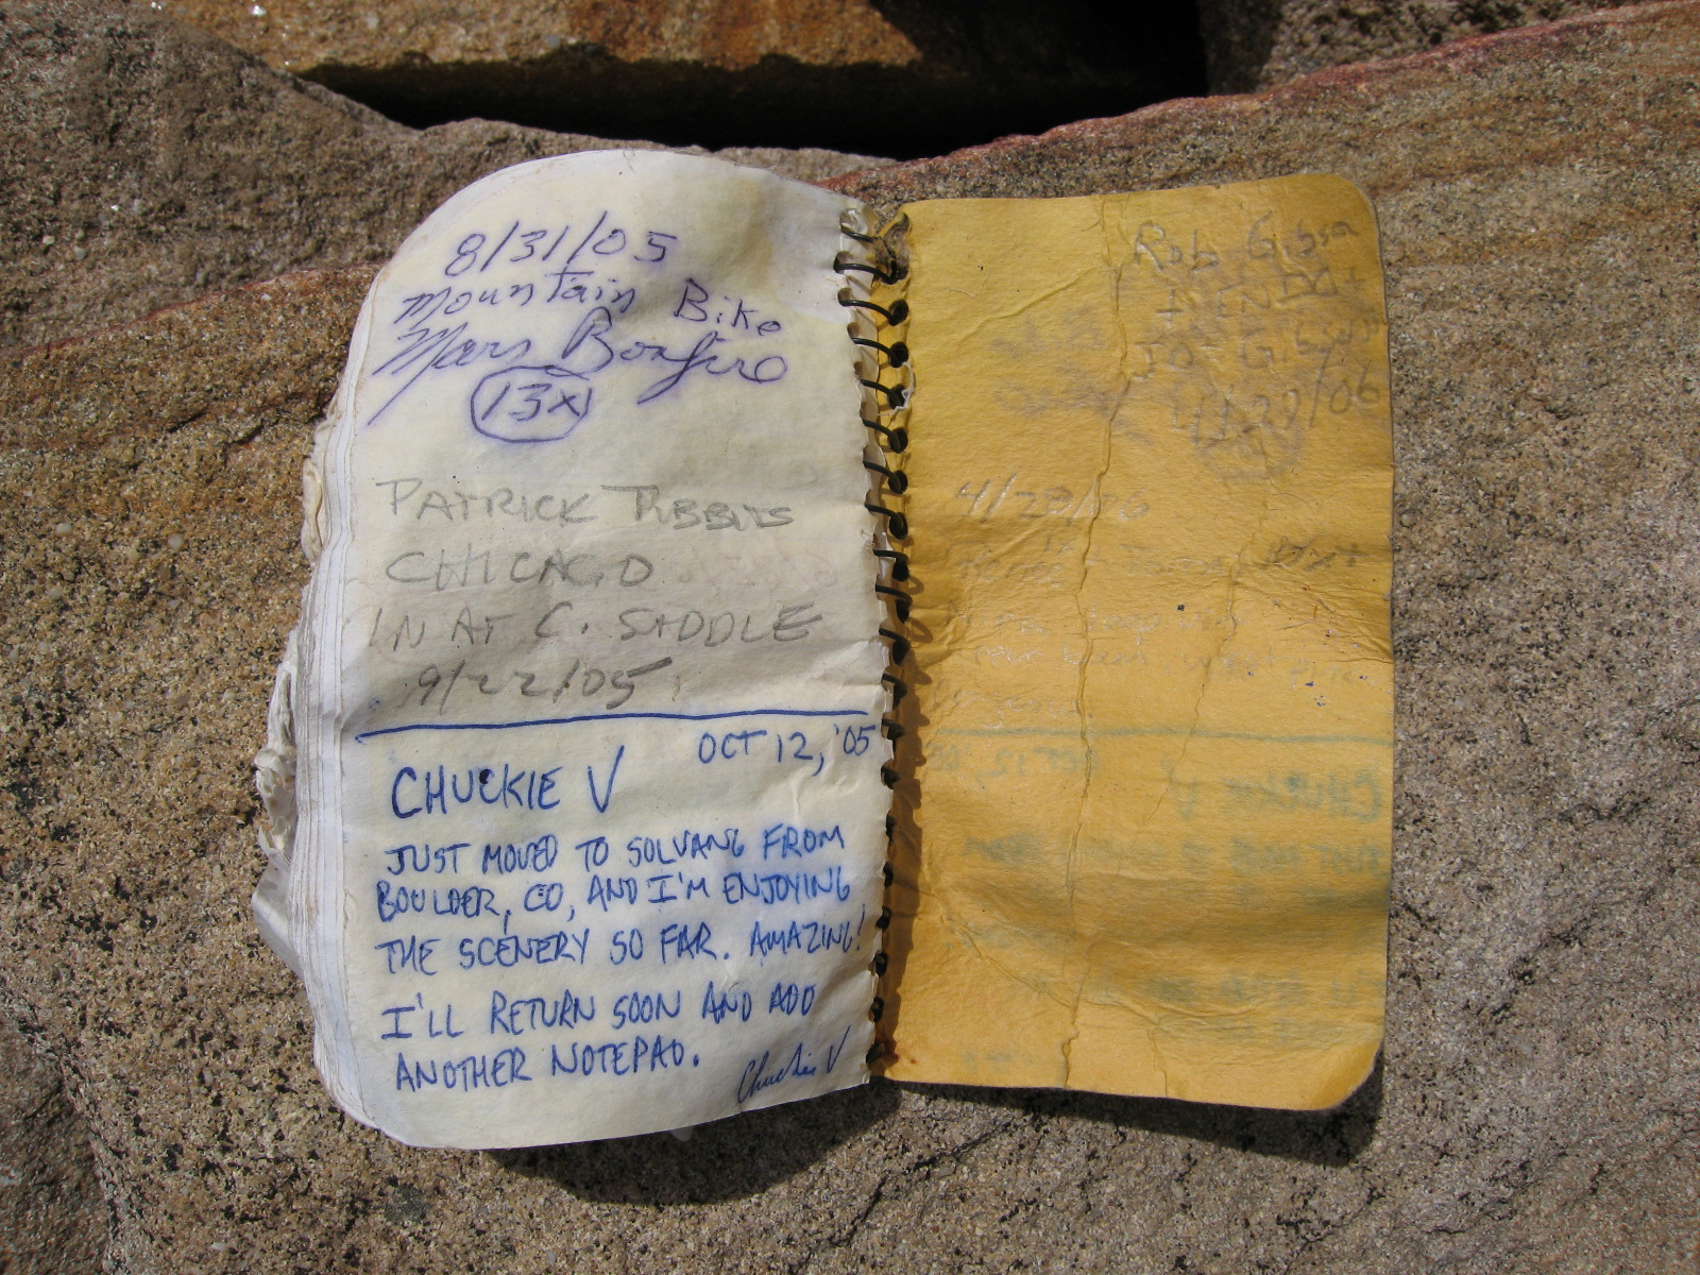 8/31/05
Mountain Bike
Mars Bonfire
13x
PATRICK TIBBITS
CHICAGO
IN AT C. SADDLE
9/22/05
OCT 12, '05
CHUCKIE V
JUST MOVED TO SOLVANG FROM
BOULDER, CO, AND I'M ENJOYING
THE SCENERY SO FAR. AMAZING!
I'LL RETURN SOON AND ADD
ANOTHER NOTEPAD.
Chuckie V
Rob Gibson
+
Gibson
/06
4/28/06